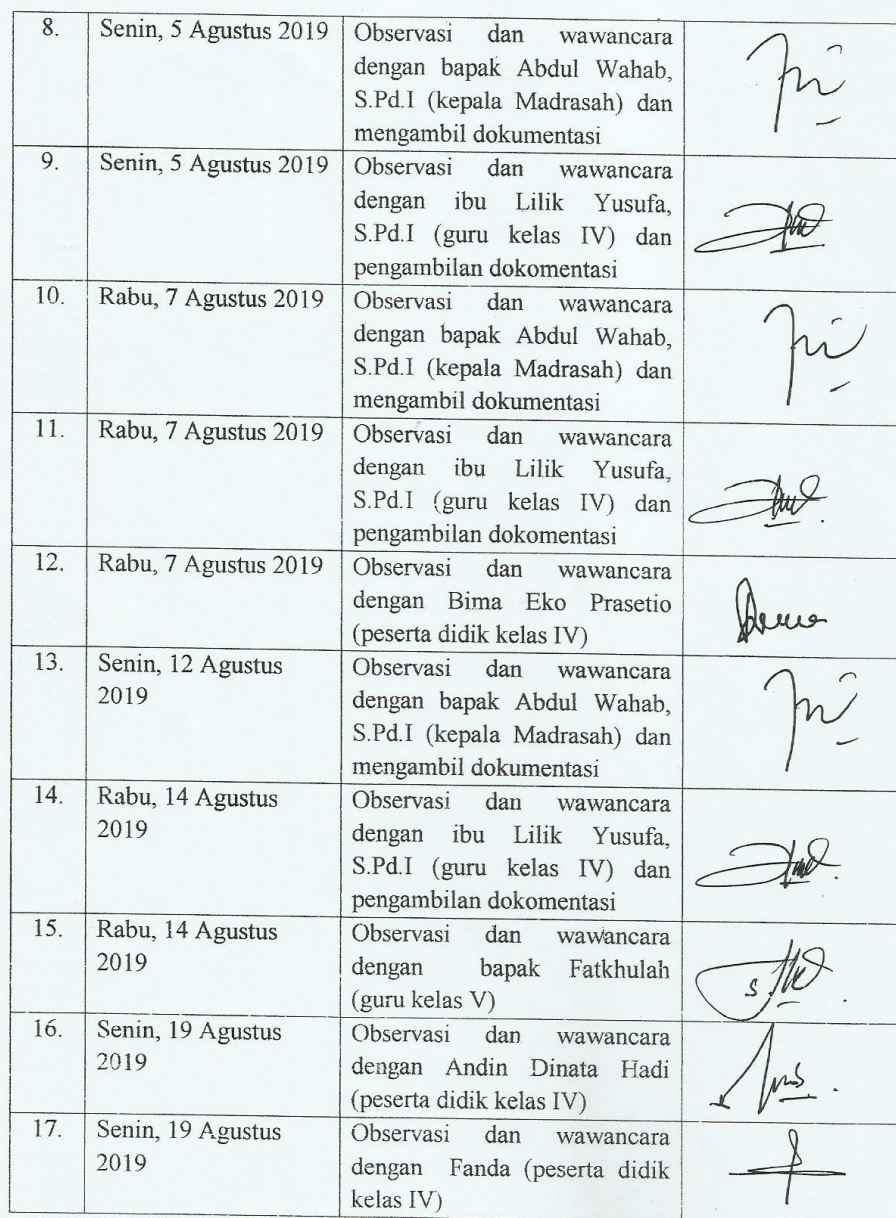 8. Senin, 5 Agustus 2019 Observasi dan wawancara
dengan bapak Abdul Wahab,
S.Pd.I (kepala Madrasah) dan
mengambil dokumentasi
9. Senin, 5 Agustus 2019 Observasi dan wawancara
dengan ibu Lilik Yusufa,
S.Pd.I (guru kelas IV) dan
pengambilan dokomentasi
10. Rabu, 7 Agustus 2019 Observasi dan wawancara
dengan bapak Abdul Wahab,
S.Pd.I (kepala Madrasah) dan
mengambil dokumentasi
11. Rabu, 7 Agustus 2019 Observasi dan wawancara
dengan ibu Lilik Yusufa,
S.Pd.I (guru kelas IV) dan
pengambilan dokomentasi
12. Rabu, 7 Agustus 2019 Observasi dan wawancara
dengan Bima Eko Prasetio
(peserta didik kelas IV)
13. Senin, 12 Agustus 2019 Observasi dan wawancara
dengan bapak Abdul Wahab,
S.Pd.I (kepala Madrasah) dan
mengambil dokumentasi
14. Rabu, 14 Agustus 2019 Observasi dan wawancara
dengan ibu Lilik Yusufa,
S.Pd.I (guru kelas IV) dan
pengambilan dokomentasi
15. Rabu, 14 Agustus 2019 Observasi dan wawancara
dengan bapak Fatkhulah
(guru kelas V)
16. Senin, 19 Agustus 2019 Observasi dan wawancara
dengan Andin Dinata Hadi
(peserta didik kelas IV)
17. Senin, 19 Agustus 2019 Observasi dan wawancara
dengan Fanda (peserta didik
kelas IV)